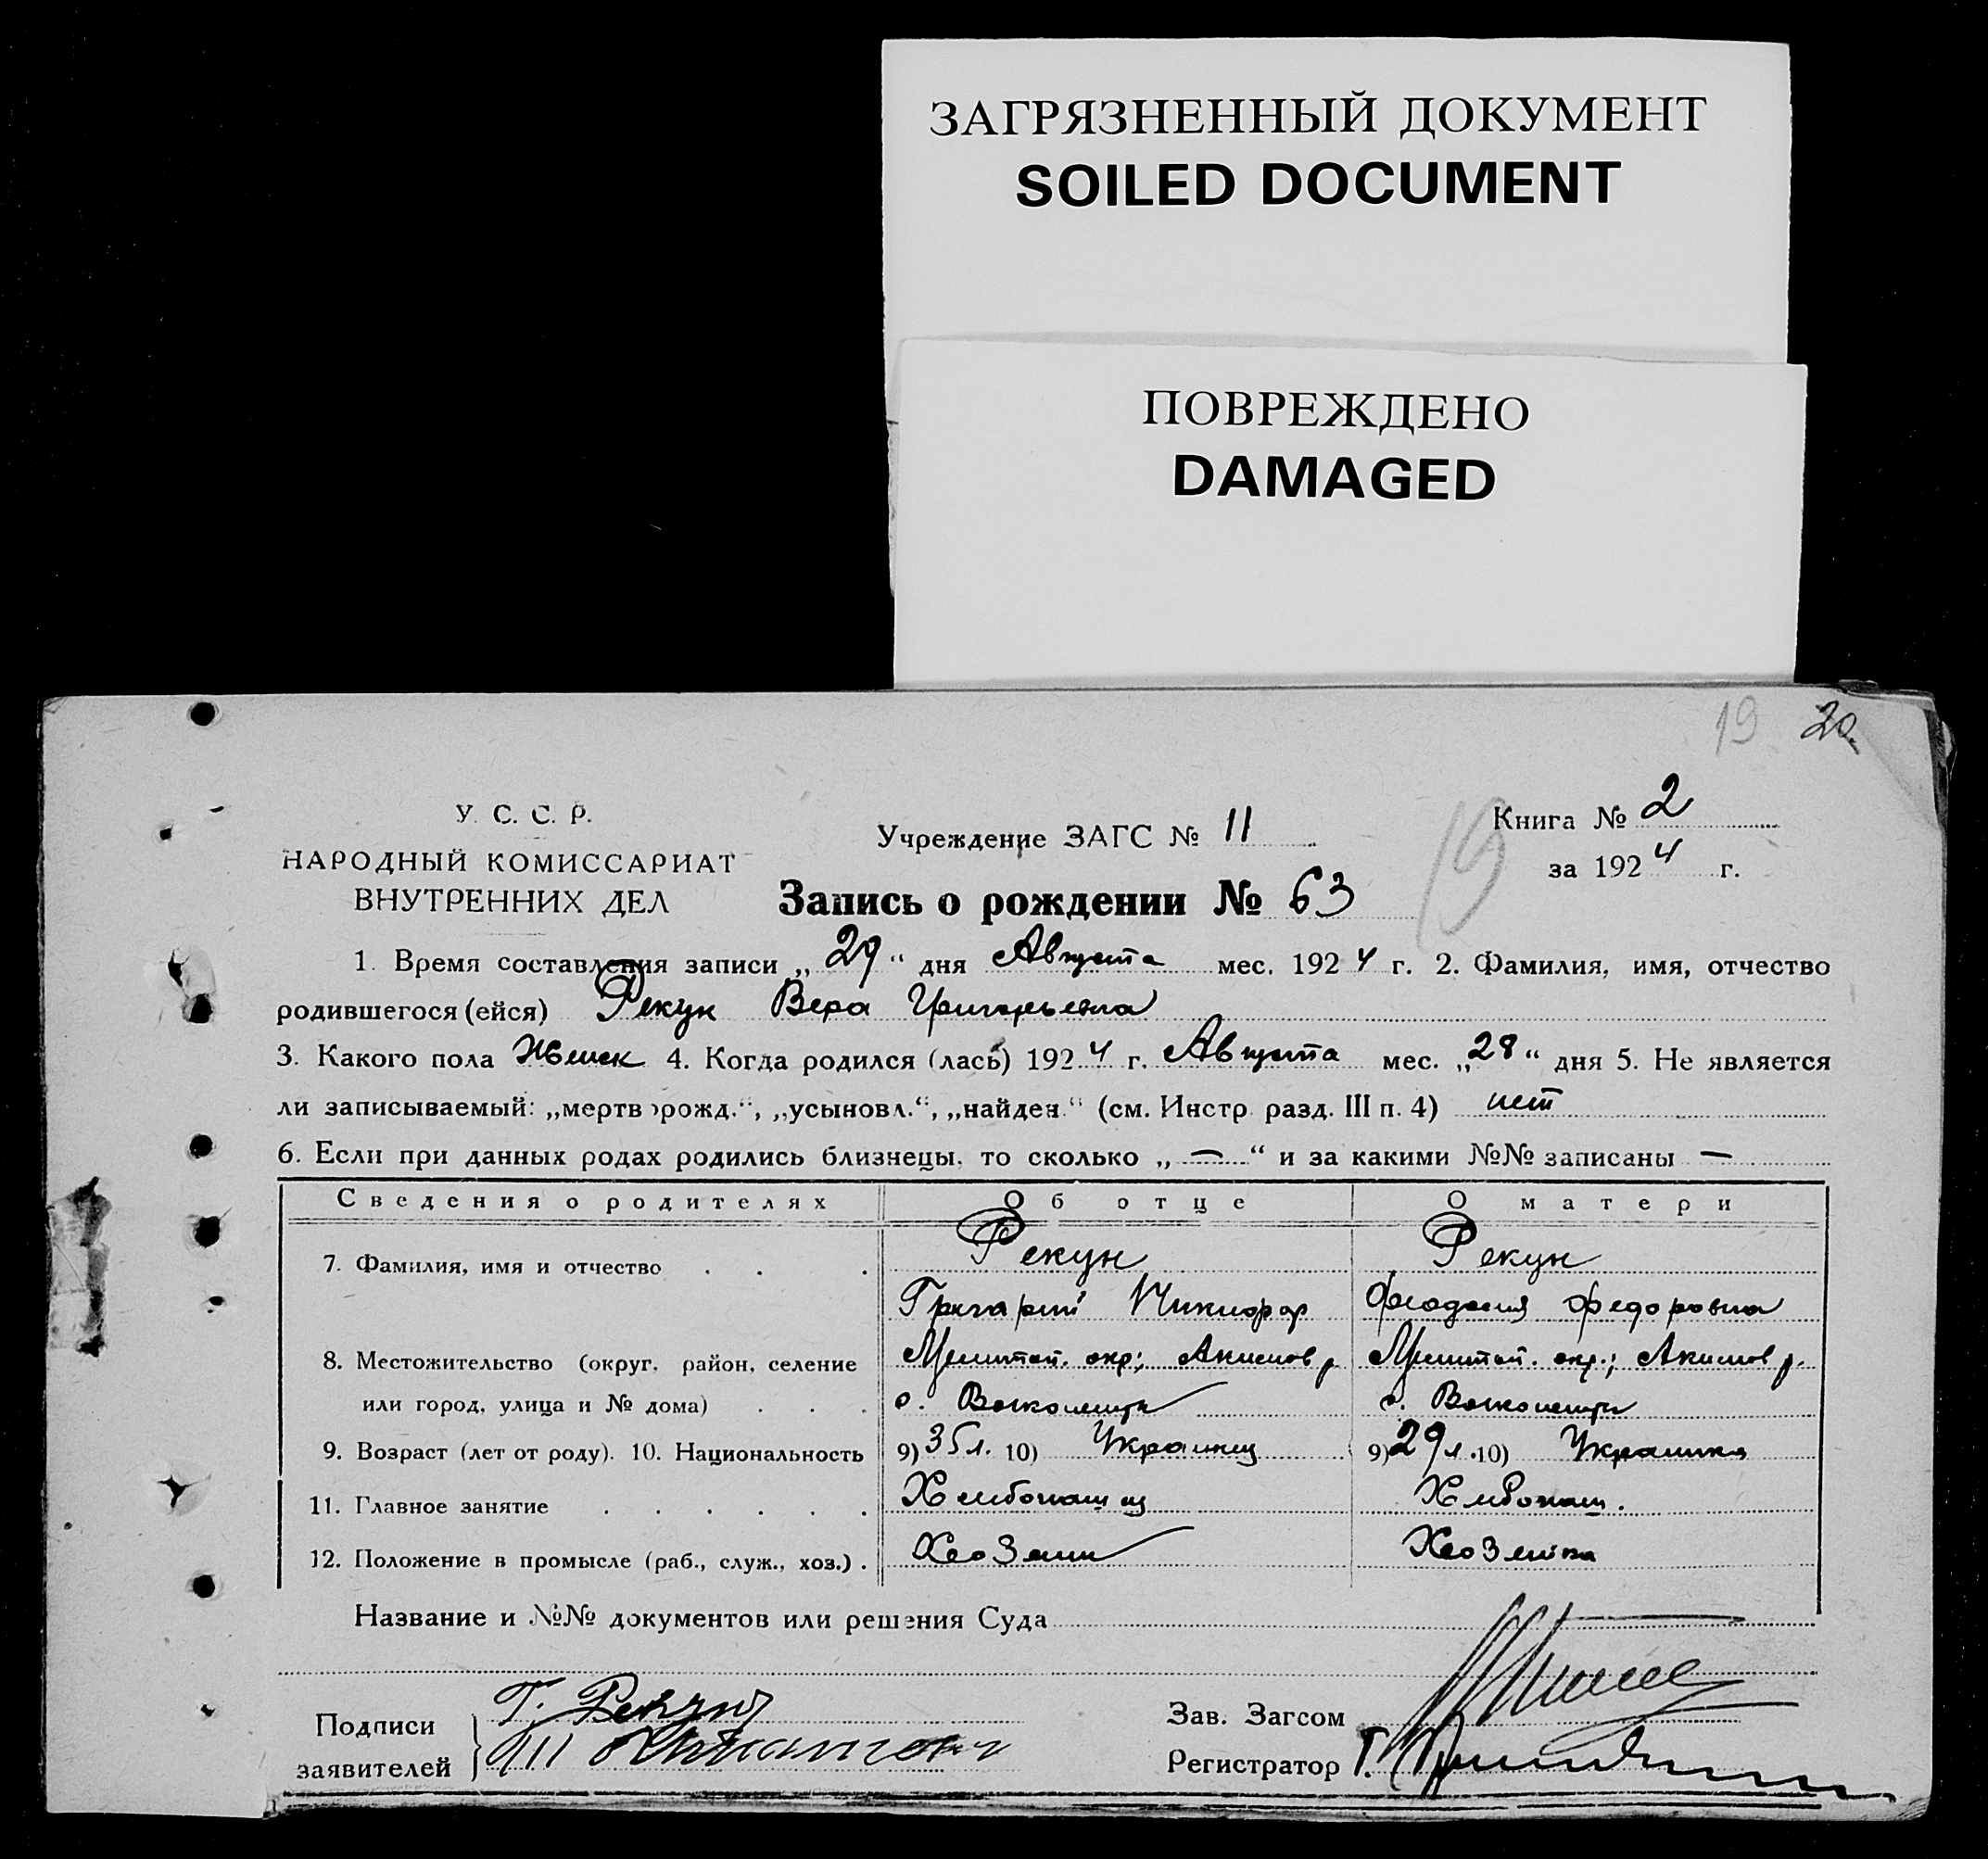 ЗАГРЯЗНЕННЫЙ ДОКУМЕНТ
SOILED DOCUMENT
ПОВРЕЖДЕНО
DAMAGED
19 20.
У. С. С. Р.
НАРОДНЫЙ КОМИССАРИАТ
ВНУТРЕННИХ ДЕЛ
Учреждение ЗАГС № 11
Книга № 2
за 1924 г.
19
Запись о рождении № 63
1. Время составления записи „29“ дня Августа мес. 1924 г. 2. Фамилия, имя, отчество
родившегося (ейся) Рекун Вера Григорьевна
3. Какого пола Женск 4. Когда родился (лась) 1924 г. Августа мес. „28“ дня 5. Не является
ли записываемый: „мертворожд.“, „усыновл.“, „найден.“ (см. Инстр. разд. III п. 4) нет
6. Если при данных родах родились близнецы, то сколько „—“ и за какими №№ записаны —
Сведения о родителях Об отце О матери
7. Фамилия, имя и отчество . . . Рекун Рекун
Григарий Никифор Феодосия Федоровна
8. Местожительство (округ, район, селение Мелитоп. окр; Акимов р. Мелитоп. окр.; Акимов р.
или город, улица и № дома) . . . с. с.
9. Возраст (лет от роду). 10. Национальность 9) 35 л. 10) Украинец 9) 29 л. 10) Украинка
11. Главное занятие . . . . . . Хлебопашец Хлебопаш.
12. Положение в промысле (раб., служ., хоз.) . Хозяин Хозяйка
Название и №№ документов или решения Суда
Подписи
заявителей
Г. Рекун
Зав. Загсом
Регистратор Г.